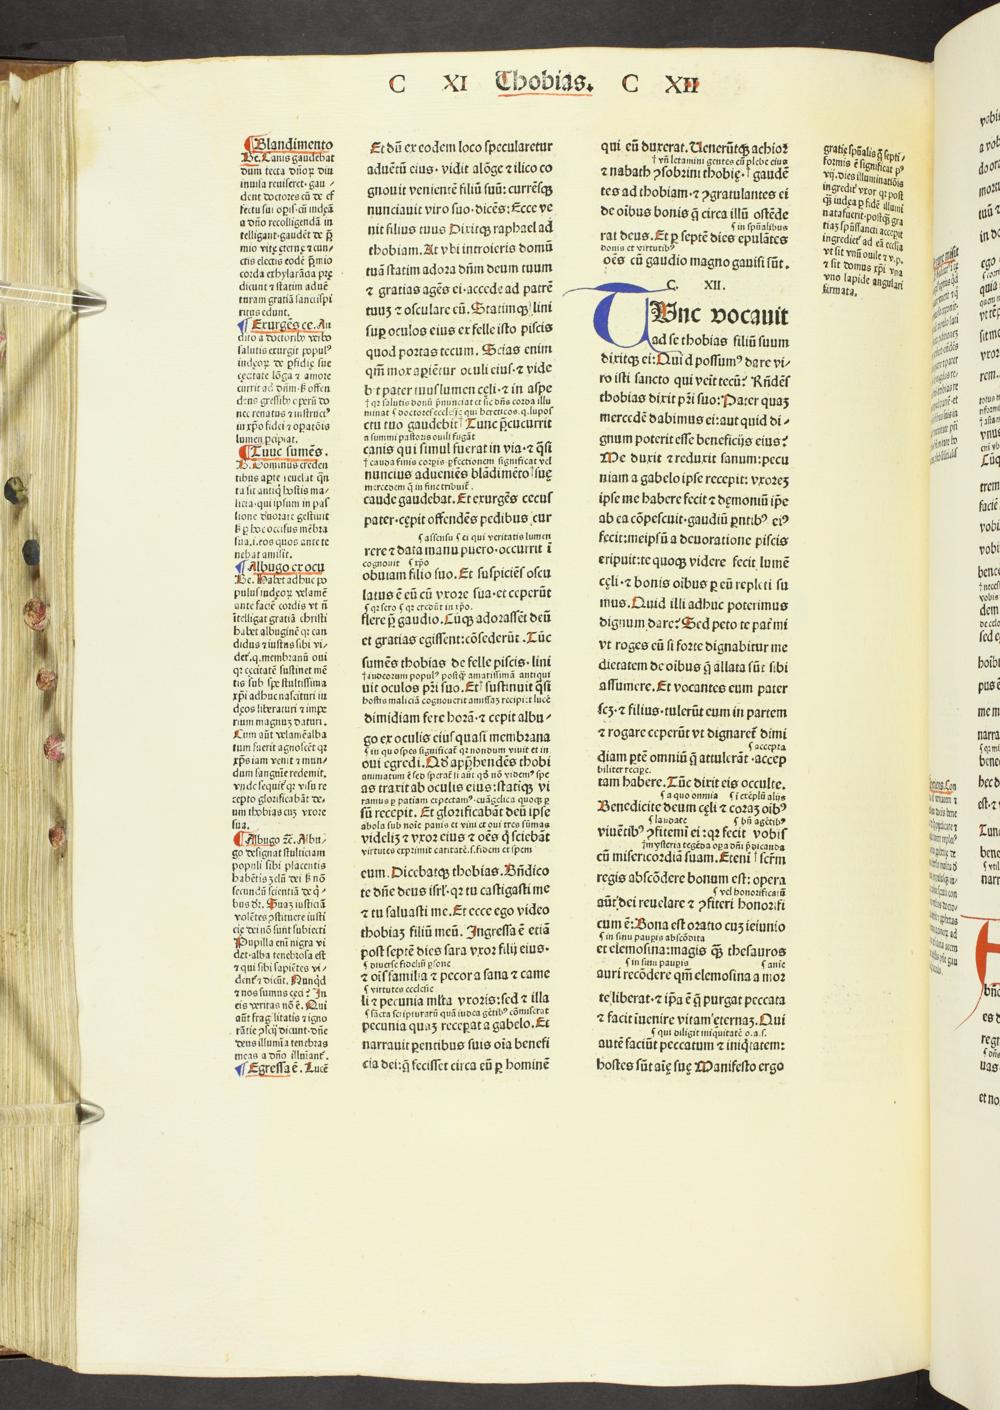 C XI Thobias. C XII
Blandimento
Be. Canis gaudebat
dum tecta dñoꝝ diu
inuisa reuiseret. gau-
dent doctores cū de ef
fectu sui opis cū indeā
a dño recolligendā in
telligant. gaudēt de p̄
mio vite eterne ⁊ cun-
ctis electis eodē p̄mio
corda exhylarāda pre
dicunt ⁊ statim aduē
turam gratiā sancti spi
ritus edunt.
Exurgēs ce. Au
dito a doctoribꝰ verbo
salutis exurgit populꝰ
lumen pcipiat.
Tunc sumēs.
B. Dominus creden
tibus apte reuelat q̄n
ta sit antiq̄ hostis ma-
licia. qui ipsum in pas
sione deuorare gestiuit
sua. i. eos quos ante te
nebat amisit.
Albugo ex ocu
Be. Habet adhuc po
pulus iudeoꝝ velamē
ante faciē cordis vt ñ
ītelligat gratiā christi
habet albuginē qꝛ can
didus ⁊ iustus sibi vi-
det. q. membranū oui
qꝛ cecitatē sustinet mē
tis sub spe stultissima
xp̄i adhuc nascituri in
deos liberaturi ⁊ impe
rium magnuꝫ daturi.
Cum aūt velamē alba
tum fuerit agnoscēt qꝛ
xp̄s iam venit ⁊ mun-
dum sanguīe redemit.
vnde sequit̄ qꝛ visu re
cepto glorificabāt de-
um thobias cuꝫ vxore
sua.
Albugo ⁊c. Albu-
go designat stultitiam
populi sibi placentis
habētis ꝫelū dei ſꝫ nō
secundū scientiā de q̄-
bus dr̄. Suaꝫ iusticiā
volētes ꝯstituere iusti
cie dei nō sunt subiecti
Pupilla enī nigra vi
det. alba tenebrosa est
⁊ qui sibi sapiētes vi-
dent̄ ⁊ dicūt. Nunqd
⁊ nos sumus ceci? In
eis veritas nō ē. Qui
aūt fragilitatis ⁊ igno
rātie ꝯscij dicunt. dñe
deus illumīa tenebras
meas a dño illuīant̄.
Egressa ē. Lucē
Et dū ex eodem loco specularetur
aduētū eius. vidit alōge ⁊ ilico co
gnouit venientē filiū suū: currēsqꝫ
nunciauit viro suo. dicēs: Ecce ve
nit filius tuus Dixitqꝫ raphael ad
thobiam. At vbi introieris domū
tuā statim adora dn̄m deum tuum
⁊ gratias agēs ei. accede ad patrē
tuuꝫ ⁊ osculare eū. Statimqꝫ lini
suꝑ oculos eius ex felle isto piscis
quod portas tecum. Scias enim
qm̄ mox apient̄ oculi eius. ⁊ vide
bit pater tuus lumen celi. ⁊ in aspe
ctu tuo gaudebit Tunc p̄cucurrit
n summi pastoris ouili fugāt
canis qui simul fuerat in via. ⁊ q̄si
† cauda finis corpis. pfectionem significat vel
nuncius adueniēs blādimēto sue
mercedem q̄ in fine tribuit̄.
caude gaudebat. Et exurgēs cecus
pater. cepit offendēs pedibus cur
ʃ assensu ʃ ei qui veritatis lumen
rere ⁊ data manu puero. occurrit ī
cognouit ʃ xp̄o
obuiam filio suo. Et suspiciēs oscu
latus ē eū cū vxore sua. et ceperūt
ʃ qꝛ sero ʃ qꝛ credūt in xp̄o.
flere p̄ gaudio. Cūqꝫ adorassēt deū
et gratias egissent: cōsederūt. Tūc
sumēs thobias de felle piscis. lini
† iudeorum populꝰ postq̄ amarissimā antiqui
uit oculos pr̄i suo. Et sustinuit q̄si
hostis maliciā cognouerit amissaꝫ recipit lucē
dimidiam fere horā. ⁊ cepit albu-
go ex oculis eius quasi membrana
ʃ in quo spes significat̄ qꝛ nondum viuit et in
oui egredi. Qd̄ app̄hendēs thobi
animatum ē sed sperat̄ si aūt qd̄ nō videmꝰ spe
as traxit ab oculis eius: statiqꝫ vi
ramus p patiam expectamꝰ. euāgelica quoqꝫ p
sū recepit. Et glorificabāt deū ipse
abola sub noīe panis et vini et oui tres sūmas
videliꝫ ⁊ vxor eius ⁊ oēs q̄ sciebāt
virtutes exprimit caritatē. s. fidem et spem
eum. Dicebatqꝫ thobias. Bñdico
te dñe deus isrl̄. qꝛ tu castigasti me
⁊ tu saluasti me. Et ecce ego video
thobiaꝫ filiū meū. Ingressa ē etiā
post septē dies sara vxor filij eius.
ʃ diuerse fideliū psone
⁊ oīs familia ⁊ pecora sana ⁊ came
ʃ virtutes ecclesie
li ⁊ pecunia ml̄ta vxoris: sed ⁊ illa
ʃ sacra scripturarū quā iudea gētibꝰ cōmiserat
pecunia quaꝫ receperat a gabelo. Et
narrauit parentibus suis oīa benefi
cia dei: q̄ fecisset circa eū ꝑ hominē
qui eū duxerat. Veneruntqꝫ achior
† vn̄ letamini gentes cū plebe eius
⁊ nabath ꝯsobrini thobie. gaudē
tes ad thobiam. ⁊ ꝯgratulantes ei
de oībus bonis q̄ circa illū ostēde
ʃ in spūalibus
rat deus. Et ꝑ septē dies epulātes
donis et virtutibꝰ
oēs cū gaudio magno gauisi sūt.
C. XII.
TVnc vocauit
ad se thobias filiū suum
dixitqꝫ ei: Quid possumꝰ dare vi-
ro isti sancto qui venit tecū? Rn̄dēs
thobias dixit pr̄i suo: Pater quaꝫ
mercedē dabimus ei: aut quid di-
gnum poterit esse beneficijs eius?
Me duxit ⁊ reduxit sanum: pecu
niam a gabelo ipse recepit: vxoreꝫ
ipse me habere fecit ⁊ demoniū ip̄e
ab ea cōpescuit. gaudiū pn̄tibꝰ eiꝰ
fecit: meipsū a deuoratione piscis
eripuit: te quoqꝫ videre fecit lumē
celi. ⁊ bonis oībus ꝑ eū repleti su
mus. Quid illi adhuc poterimus
dignum dare? Sed peto te pat̄ mi
vt roges eū si forte dignabitur me
dietatem de oībus q̄ allata sūt sibi
assumere. Et vocantes eum pater
scꝫ. ⁊ filius. tulerūt eum in partem
⁊ rogare ceperūt vt dignaret̄ dimi
ʃ accepta
diam ptē omniū q̄ attulerāt. accep
biliter recipe.
tam habere. Tūc dixit eis occulte.
ʃ a quo omnia ʃ i exēplū alijs
Benedicite deum celi ⁊ coraꝫ oībꝰ
ʃ laudate ʃ bn̄ agētibꝰ
viuētibꝰ ꝯfitemī ei: qꝛ fecit vobis
† mysteria tegēda opa dñi p̄dicanda
cū misericordiā suam. Etenī scr̄m
regis abscōdere bonum est: opera
ʃ vel honorificatiū
aūt dei reuelare ⁊ ꝯfiteri honorifi
cum ē: Bona est oratio cuꝫ ieiunio
ʃ in sinu paupis abscōdita
et elemosina: magis qꝫ thesauros
ʃ in sinu paupis ʃ anie
auri recōdere qm̄ elemosina a mor
te liberat. ⁊ ip̄a ē q̄ purgat peccata
⁊ facit īuenire vitam eternaꝫ. Qui
ʃ qui diligit iniquitatē o. a. s.
autē faciūt peccatum ⁊ iniqtatem:
hostes sūt aīe sue Manifesto ergo
gratie spūalis q̄ septi-
formis ē significat pꝰ
vij. dies illuminatiōis
ingredit̄ vxor qꝛ post
qꝫ iudea p fidē illumi
nata fuerit. postqꝫ gra
tiaꝫ spūssancti acceperit
ingrediet̄ ad eā ecclīa
vt sit vnū ouile ⁊ v. p.
⁊ sit domus xp̄i vna
vno lapide angulari
firmata.